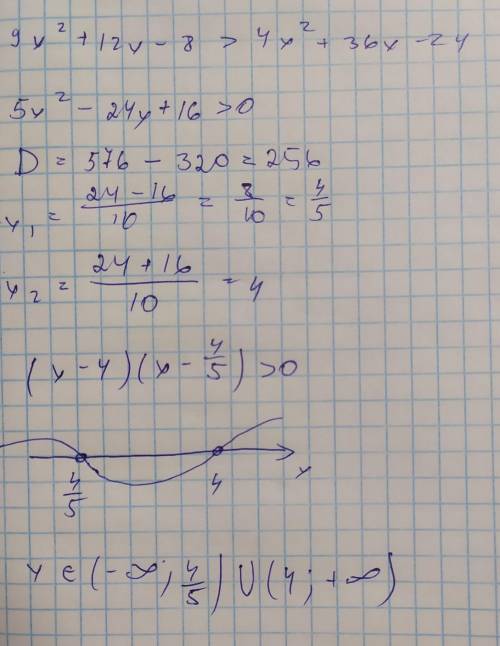 9x² + 12x - 8 > 4x² + 36x - 24
5x² - 24x + 16 > 0
D = 576 - 320 = 256
x₁ = (24 - 16)/10 = 8/10 = 4/5
x₂ = (24 + 16)/10 = 4
(x - 4)(x - 4/5) > 0
4/5 4 x
x ∈ (-∞; 4/5) ∪ (4; +∞)